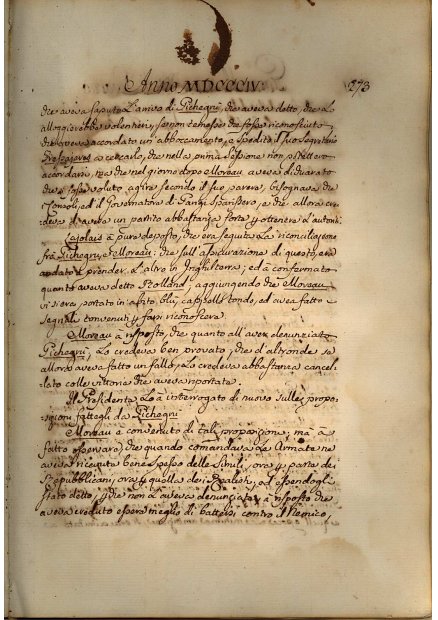 Anno MDCCCIV.
273
che aveva saputo l'arrivo di Pichegrù, che aveva detto, che lo
alloggierebbe volentieri, se non temesse che fosse riconosciuto,
che aveva accordato un abboccamento, e spedito il suo Segretario
a cercarlo, che nella prima sessione non potettero
accordarsi, ma che nel giorno dopo Moreau aveva dichiarato
che se fosse voluto agire secondo il suo parere, bisognava che
i Consoli, ed il Governatore di Parigi sparissero, e che allora cre-
deva d'avere un partito abbastanza forte per ottenere l'autorità
Lajolais à pure deposto, che era seguita la riconciliazione
frà Pichegru, e Moreau, che sull'assicurazione di questo, era
andato a prender l'altro in Inghilterra; ed à confermato
quanto aveva detto Rolland, aggiungendo che Moreau
si si era portato in abito blù, cappello tondo, ed aveva fatto
segnali convenuti per farsi riconoscere.
Moreau à risposto, che quanto all'aver denunziato
Pichegrù, lo credeva ben provato, che d'altronde se
allora aveva fatto un fallo, lo credeva abbastanza cancel-
lato colle vittorie che aveva riportate.
Il Presidente lo à interrogato di nuovo sulle propo-
sizioni fattegli da Pichegrù
Moreau à convenuto di tali proposizioni, mà à
fatto osservare, che quando comandava le Armate ne
aveva ricevute bene spesso delle simili, ora per parte de'
Repubblicani, ora per quella dei Realisti, ed essendogli
stato detto, perche non l'aveva denunciate, à risposto che
aveva creduto essere meglio di battersi contro il Nemico,